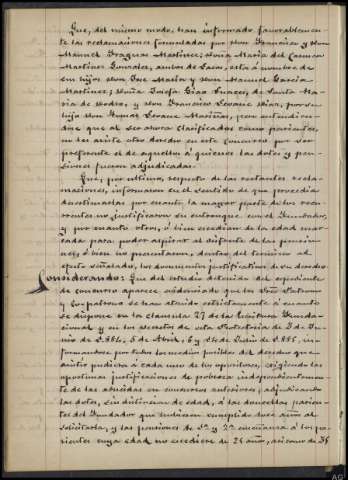 Que, del mismo modo, han informado favorablemen-
te las reclamaciones formuladas por Don Francisco y Don
Manuel Fraguas Martinez; Doña Maria del Carmen
Martinez Gonzalez, ambos de Lazas, esta á nombre de
sus hijos Don José Maria y Don Manuel Garcia
Martinez; Doña Josefa Giao Suarez, de Santa Ma-
ria de Sodro, y Don Francisco Lovane Diaz, por su
hija Doña Lovane Mariñas, pero entendien-
dose que al ser ahora clasificados como parientes,
no les asiste otro derecho en este concurso por ser
preferente el de aquellos á quienes las dotes y pen-
siones fueron adjudicadas.
Que, por ultimo, respecto de las restantes recla-
maciones, informaron en el sentido de que procedia
desestimarlas por cuanto la mayor parte de los recu-
rrentes no justificaron su entronque con el Fundador,
y por cuanto otros, ó bien excedian de la edad mar-
cada para poder aspirar al disfrute de las pensio-
nes, ó bien no presentaron, dentro del termino al
efecto señalado, los documentos justificativos de su derecho.
Considerando: Que del estudio detenido del expediente
de concurso aparece evidenciado que los Señores Patronos
y Copatronos se han atenido estrictamente á cuanto
se dispone en la clausula 27 de la Escritura Funda-
cional y en los decretos de este Protectorado de 3 de Ju-
nio de 1884, 6 de Abril, 6 y 26 de Junio de 1885, in-
formandose por todos los medios posibles del derecho que
asistir pudiera á cada uno de los opositores, exigiendo las
oportunas justificaciones de pobreza independientemen-
te de las aducidas en concursos anteriores; adjudicando
las dotes, sin distincion de edad, á las doncellas parien-
tes del Fundador que hubiesen cumplido doce años al
solicitarla, y las pensiones de 1ª y 2ª enseñanza á los pa-
rientes cuya edad no excediere de 25 años, asi como de 35
AG